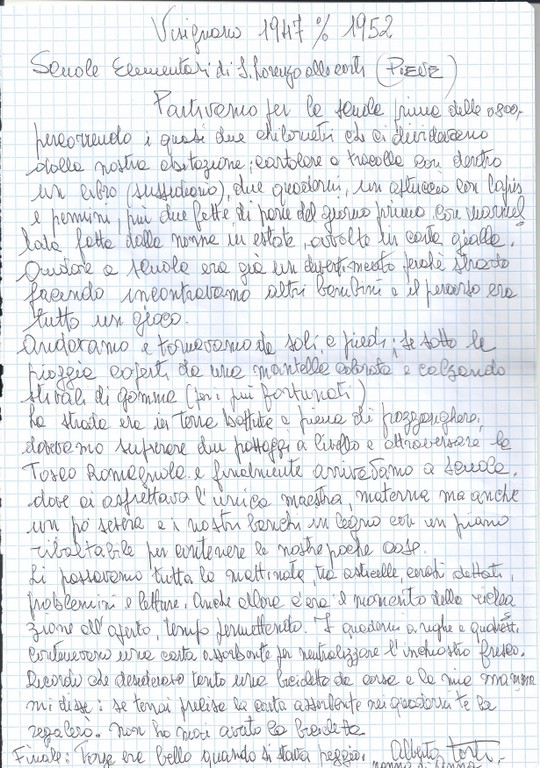 Visignano 1947 % 1952
Scuole Elementari di S. Lorenzo alle corti (PIEVE)
Partivamo per la scuola prima delle 0800,
percorrendo i quasi due chilometri che ci dividevano
dalla nostra abitazione; cartolare a tracolla con dentro
un libro (sussidiario), due quaderni, un astuccio con lapis
e pennini, più due fette di pane del giorno primo, con marmel
lata fatta dalla nonna in estate, avvolte in carta gialla.
Andare a scuola era già un divertimento perchè strada
facendo incontravamo altri bambini e il percorso era
tutto un gioco.
Andavamo e tornavamo da soli a piedi; se sotto la
pioggia coperti da una mantella colorata e calzando
stivali di gomma (per i più fortunati)
La strada era in terra battuta e piena di pozzanghere,
dovevamo superare due passaggi a livello e attraversare la
Tosco Romagnola e finalmente arrivavamo a scuola,
dove ci aspettava l'unica maestra, materna ma anche
un po' severa e i nostri banchi in legno con un piano
ribaltabile per contenere le nostre poche cose.
Li passavamo tutta la mattinata, tra asticelle, cerchi, dettati,
problemini e letture. Anche allora c'era il momento della ricrea
zione all'aperto, tempo permettendo. I quaderni a righe e quadretti
contenevano una carta assorbente per neutralizzare l'inchiostro fresco.
Ricordo che desideravo tanto una bicicletta da corsa e la mia mamma
mi disse: se tieni precisa la carta assorbente nei quaderni te la
regalerò. Non ho mai avuto la bicicletta
Finale: Forse era bello quando si stava peggio. Alberto
nonno di